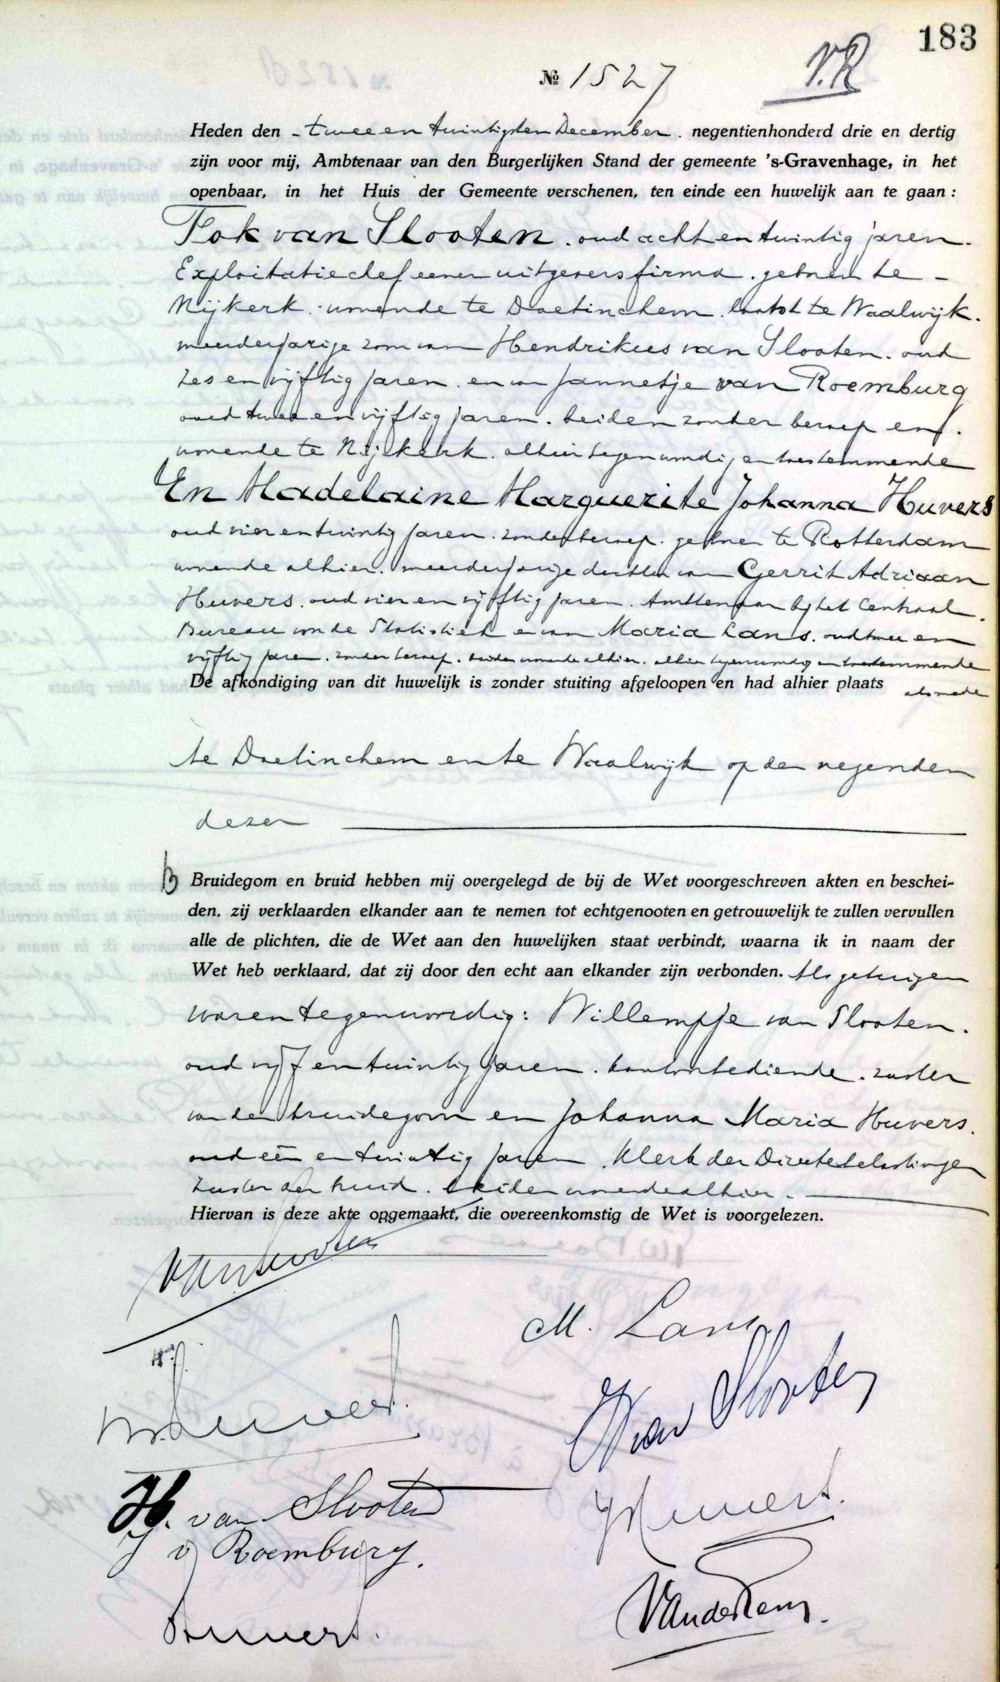 183
V.R
№ 1527
Heden den - twee en twintigsten December. negentienhonderd drie en dertig
zijn voor mij, Ambtenaar van den Burgerlijken Stand der gemeente 's-Gravenhage, in het
openbaar, in het Huis der Gemeente verschenen, ten einde een huwelijk aan te gaan:
Fok van Slooten. oud acht en twintig jaren.
Exploitatiechef eener uitgeversfirma. geboren te -
Nijkerk. wonende te Doetinchem. laatst te Waalwijk.
meerderjarige zoon van Hendrikus van Slooten. oud
zes en vijftig jaren. en van Jannetje van Roemburg
oud twee en vijftig jaren. beiden zonder beroep en.
wonende te Nijkerk. alhier tegenwoordig en toestemmende
En Madelaine Marguerite Johanna Huvers
oud vier en twintig jaren. zonder beroep. geboren te Rotterdam
wonende alhier. meerderjarige dochter van Gerrit Adriaan
Huvers. oud vier en vijftig jaren. Ambtenaar bij het Centraal
Bureau van de Statistiek en van Maria Lans. oud twee en
vijftig jaren. zonder beroep. beiden wonende alhier. alhier tegenwoordig en toestemmende
De afkondiging van dit huwelijk is zonder stuiting afgeloopen en had alhier plaats alsmede
te Doetinchem en te Waalwijk op den negenden
dezer
Bruidegom en bruid hebben mij overgelegd de bij de Wet voorgeschreven akten en beschei-
den, zij verklaarden elkander aan te nemen tot echtgenooten en getrouwelijk te zullen vervullen
alle de plichten, die de Wet aan den huwelijken staat verbindt, waarna ik in naam der
Wet heb verklaard, dat zij door den echt aan elkander zijn verbonden. Als getuigen
waren tegenwoordig: Willempje van Slooten.
oud vijf en twintig jaren. kantoorbediende. zuster
van den bruidegom en Johanna Maria Huvers.
oud een en twintig jaren. klerk der Directe belastingen
zuster der bruid. beiden wonende alhier.
Hiervan is deze akte opgemaakt, die overeenkomstig de Wet is voorgelezen.
van Slooten
M. Lans
Huvers.
W van Slooten
H. van Slooten
J v Roemburg.
JHuvers.
Huvers.